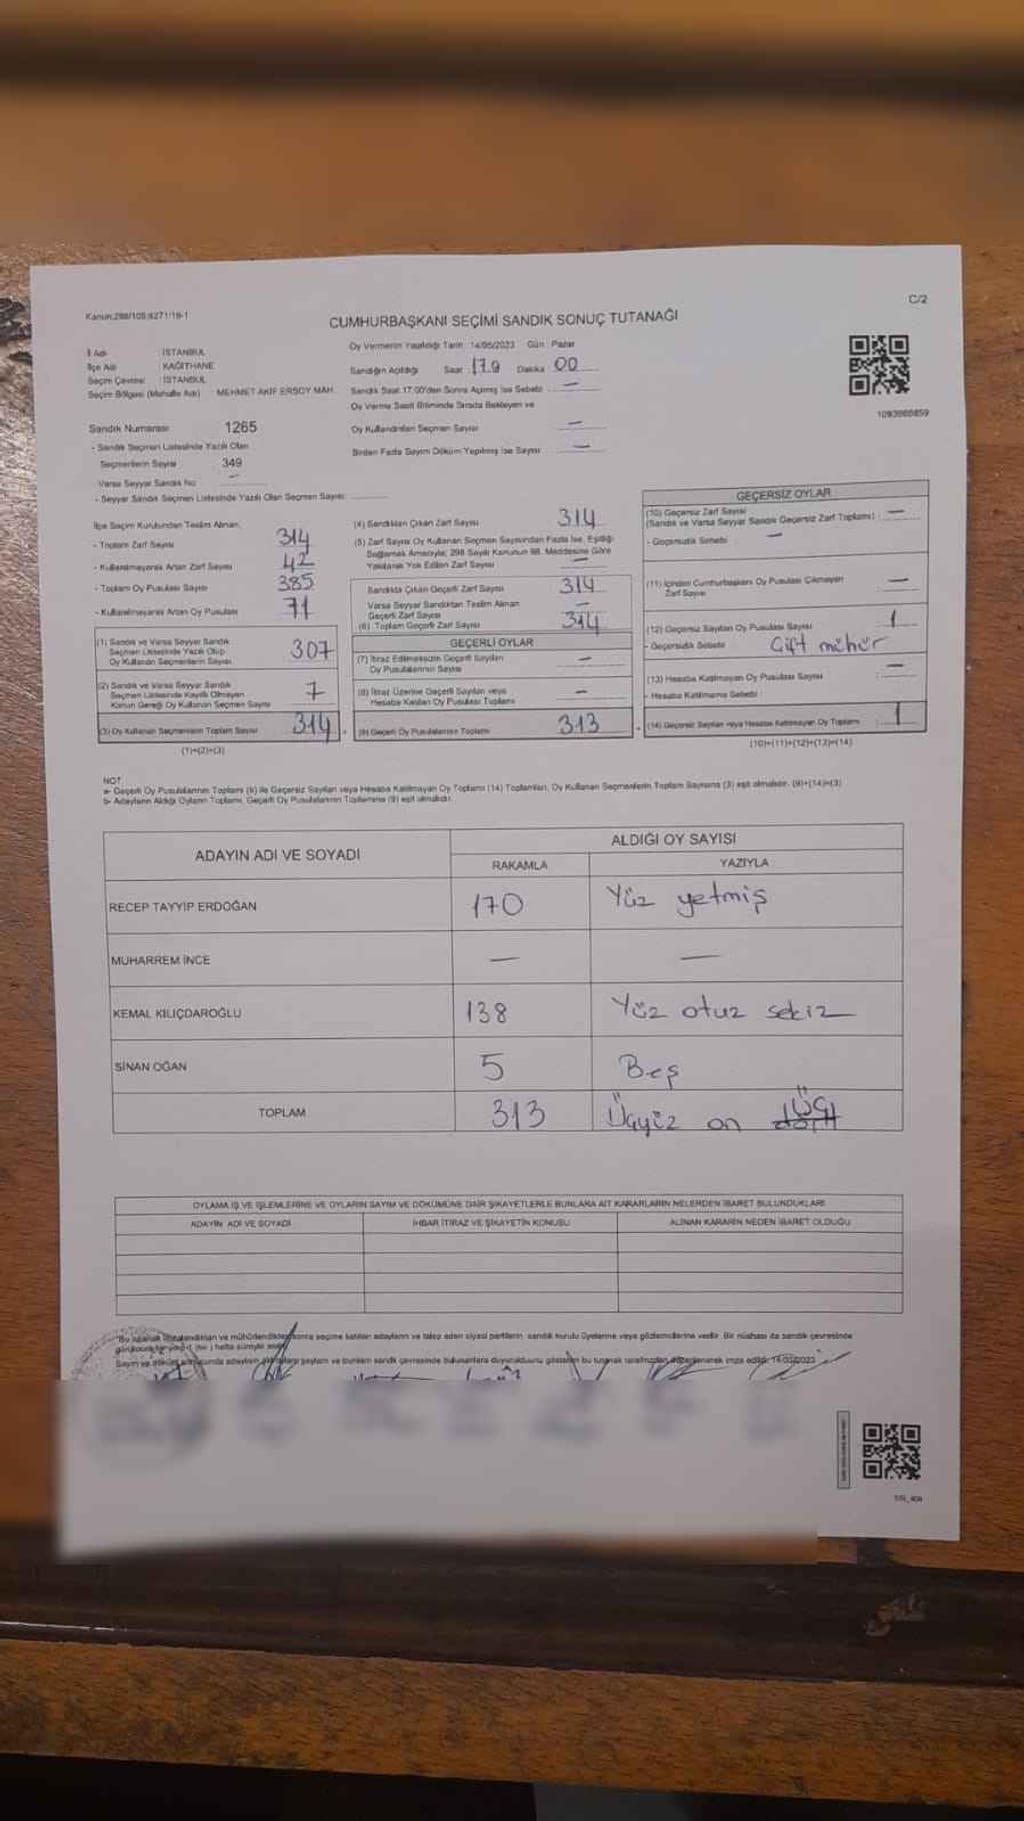 Kanun:298/105;6271/19-1
C/2
CUMHURBAŞKANI SEÇİMİ SANDIK SONUÇ TUTANAĞI
İl Adı : İSTANBUL
İlçe Adı : KAĞITHANE
Seçim Çevresi : İSTANBUL
Seçim Bölgesi (Mahalle Adı) : MEHMET AKİF ERSOY MAH.
Sandık Numarası 1265
- Sandık Seçmen Listesinde Yazılı Olan
Seçmenlerin Sayısı 349
Varsa Seyyar Sandık No : —
- Seyyar Sandık Seçmen Listesinde Yazılı Olan Seçmen Sayısı:
Oy Vermenin Yapıldığı Tarih : 14/05/2023 Gün : Pazar
Sandığın Açıldığı Saat : 17.0 Dakika 00
Sandık Saat 17:00'den Sonra Açılmış İse Sebebi : —
Oy Verme Saati Bitiminde Sırada Bekleyen ve
Oy Kullandırılan Seçmen Sayısı —
Birden Fazla Sayım Döküm Yapılmış İse Sayısı —
1093988859
İlçe Seçim Kurulundan Teslim Alınan;
- Toplam Zarf Sayısı 314
- Kullanılmayarak Artan Zarf Sayısı 42
- Toplam Oy Pusulası Sayısı 385
- Kullanılmayarak Artan Oy Pusulası 71
(1) Sandık ve Varsa Seyyar Sandık
Seçmen Listesinde Yazılı Olup
Oy Kullanan Seçmenlerin Sayısı 307
(2) Sandık ve Varsa Seyyar Sandık
Seçmen Listesinde Kayıtlı Olmayan
Kanun Gereği Oy Kullanan Seçmen Sayısı 7
(3) Oy Kullanan Seçmenlerin Toplam Sayısı 314
(1)+(2)=(3)
(4) Sandıktan Çıkan Zarf Sayısı 314
(5) Zarf Sayısı Oy Kullanan Seçmen Sayısından Fazla İse, Eşitliği
Sağlamak Amacıyla; 298 Sayılı Kanunun 98. Maddesine Göre
Yakılarak Yok Edilen Zarf Sayısı —
Sandıkta Çıkan Geçerli Zarf Sayısı 314
Varsa Seyyar Sandıktan Teslim Alınan
Geçerli Zarf Sayısı —
(6) Toplam Geçerli Zarf Sayısı 314
GEÇERLİ OYLAR
(7) İtiraz Edilmeksizin Geçerli Sayılan
Oy Pusulalarının Sayısı —
(8) İtiraz Üzerine Geçerli Sayılan veya
Hesaba Katılan Oy Pusulası Toplamı —
(9) Geçerli Oy Pusulalarının Toplamı 313
GEÇERSİZ OYLAR
(10) Geçersiz Zarf Sayısı
(Sandık ve Varsa Seyyar Sandık Geçersiz Zarf Toplamı) : —
- Geçersizlik Sebebi : —
(11) İçinden Cumhurbaşkanı Oy Pusulası Çıkmayan
Zarf Sayısı —
(12) Geçersiz Sayılan Oy Pusulası Sayısı : 1
- Geçersizlik Sebebi Çift mühür
(13) Hesaba Katılmayan Oy Pusulası Sayısı : —
- Hesaba Katılmama Sebebi :
(14) Geçersiz Sayılan veya Hesaba Katılmayan Oy Toplamı : 1
(10)+(11)+(12)+(13)=(14)
NOT:
a- Geçerli Oy Pusulalarının Toplamı (9) ile Geçersiz Sayılan veya Hesaba Katılmayan Oy Toplamı (14) Toplamları, Oy Kullanan Seçmenlerin Toplam Sayısına (3) eşit olmalıdır. (9)+(14)=(3)
b- Adayların Aldığı Oyların Toplamı, Geçerli Oy Pusulalarının Toplamına (9) eşit olmalıdır.
ADAYIN ADI VE SOYADI
ALDIĞI OY SAYISI
RAKAMLA YAZIYLA
RECEP TAYYİP ERDOĞAN 170 Yüz yetmiş
MUHARREM İNCE — —
KEMAL KILIÇDAROĞLU 138 Yüz otuz sekiz
SİNAN OĞAN 5 Beş
TOPLAM 313 Üçyüz on dört üç
OYLAMA İŞ VE İŞLEMLERİNE VE OYLARIN SAYIM VE DÖKÜMÜNE DAİR ŞİKAYETLERLE BUNLARA AİT KARARLARIN NELERDEN İBARET BULUNDUKLARI
ADAYIN ADI VE SOYADI İHBAR İTİRAZ VE ŞİKAYETİN KONUSU ALINAN KARARIN NEDEN İBARET OLDUĞU
sonra seçime katılan adayların ve talep eden siyasi partilerin, sandık kurulu üyelerine veya gözlemcilerine verilir. Bir nüshası da sandık çevresinde